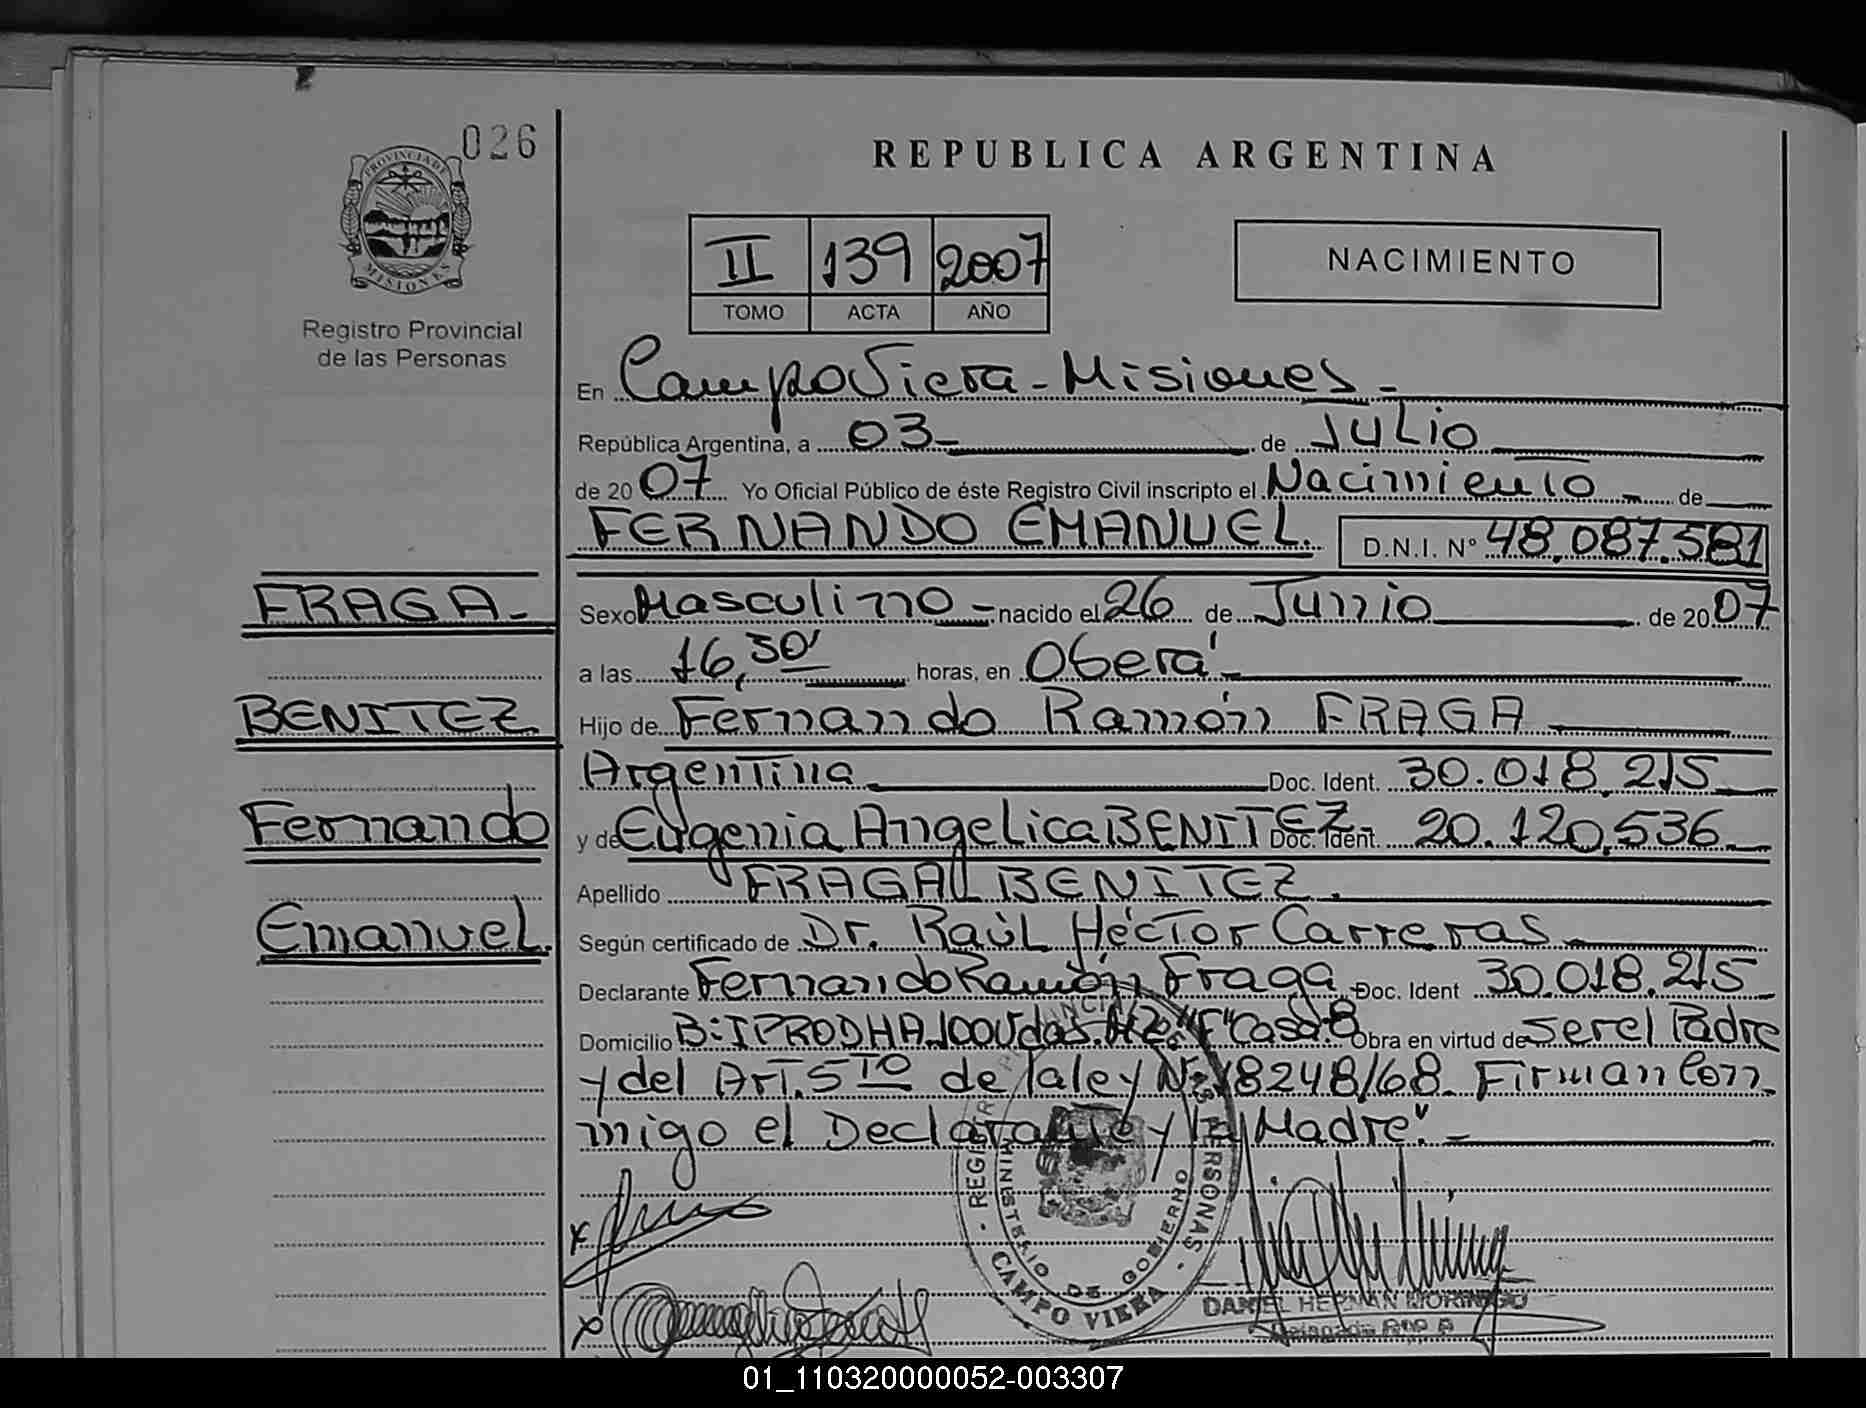 026
PROVINCIA DE
MISIONES
Registro Provincial
de las Personas
FRAGA-
BENITEZ
Fernando
Emanuel.
REPUBLICA ARGENTINA
II 139 2007
TOMO ACTA AÑO
NACIMIENTO
En Campo Viera - Misiones -
República Argentina, a 03- de Julio
de 2007 Yo Oficial Público de éste Registro Civil inscripto el Nacimiento - de
FERNANDO EMANUEL. D.N.I. Nº 48.087.581
Sexo Masculino - nacido el 26 de Junio de 2007
a las 16,30' horas, en Oberá -
Hijo de Fernando Ramón FRAGA
Argentina Doc. Ident. 30.018.215
y de Eugenia Angelica BENITEZ- Doc. Ident. 20.120.536
Apellido FRAGA BENITEZ.
Según certificado de Dr. Raúl Héctor Carreras
Declarante Fernando Ramón Fraga - Doc. Ident 30.018.215
Domicilio B: IPRODHA.100Vdas. Mz. "F" Casa: 8 Obra en virtud de ser el Padre
y del Art. 5to de la ley Nº 18248/68. Firman Con
migo el Declarante y la Madre". -
REGISTRO PROVINCIAL DE LAS PERSONAS
MINISTERIO DE GOBIERNO
CAMPO VIERA
x
x
DANIEL HERNAN MORINIGO
Delegado
01_110320000052-003307